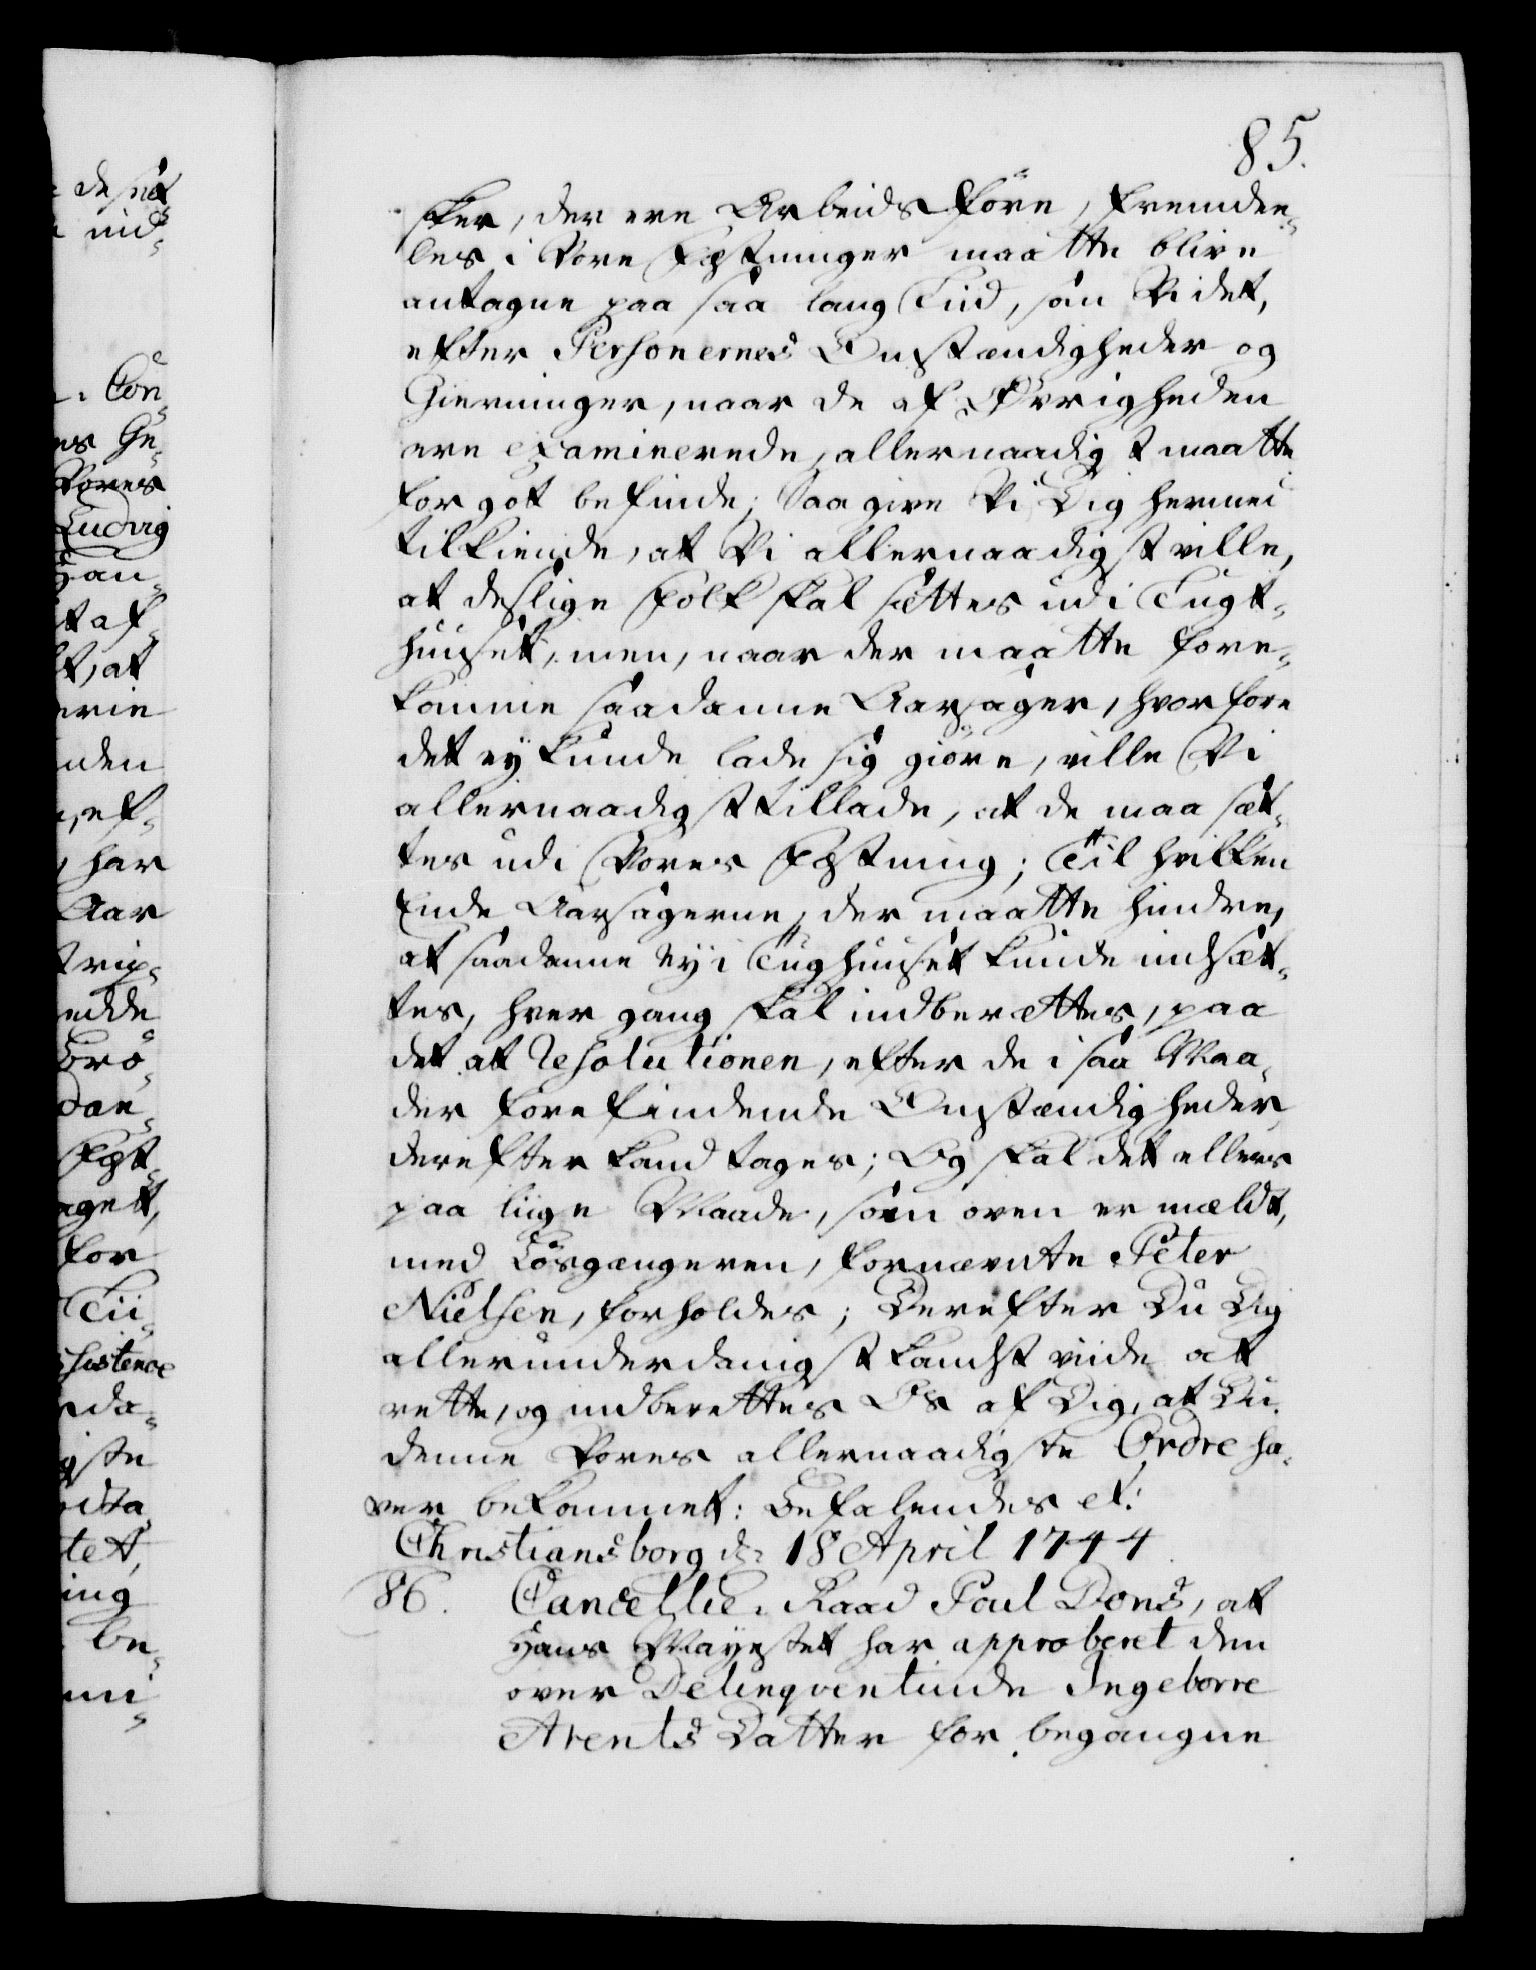 85.
sker, der ere Arbeids före, fremdee-
les i Vore Fæstninger maatte blive
antagne paa saa lang Tiid, som Vi det,
efter Personernes Omstændigheder og
Gierninger, naar de af Øvrigheden
ere examinerede, allernaadigst maatte
for got befinde; Saa give Vi Dig hermed
tilkiende, at Vi allernaadigst ville,
at deslige Folk skal sættes udi Tugt-
huuset, men, naar der maatte fore-
komme saadanne Aarsager, hvorfore
det ey kunde lade sig giöre, ville Vi
allernaadigst tillade, at de maa sæt-
tes udi Vores Fæstning; Til hvilken
Ende Aarsagerne, der maatte hindre,
at saadanne ey i Tugthuuset kunde indsæt-
tes, hver gang skal indberettes, paa
det at Resolutionen, efter de i saa Maa-
der forefindende Omstændigheder,
derefter kand tages; Og skal det ellers
paa liige Maade, som oven er mældt,
med Lösgængeren, fornævnte Peter
Nielsen, forholdes; Derefter Du Dig
allerunderdanigst kandst viide at
rette, og indberettes Os af Dig, at Du
denne Vores allernaadigste Ordre ha-
ver bekommet: Befalendes etc:
Christiansborg d: 18 April 1744
86. Cancellie-Raad Poul Dons, at
Hans Mayestet har approberet den
over Delinqventinde Ingeborre
Arents Datter for begangne